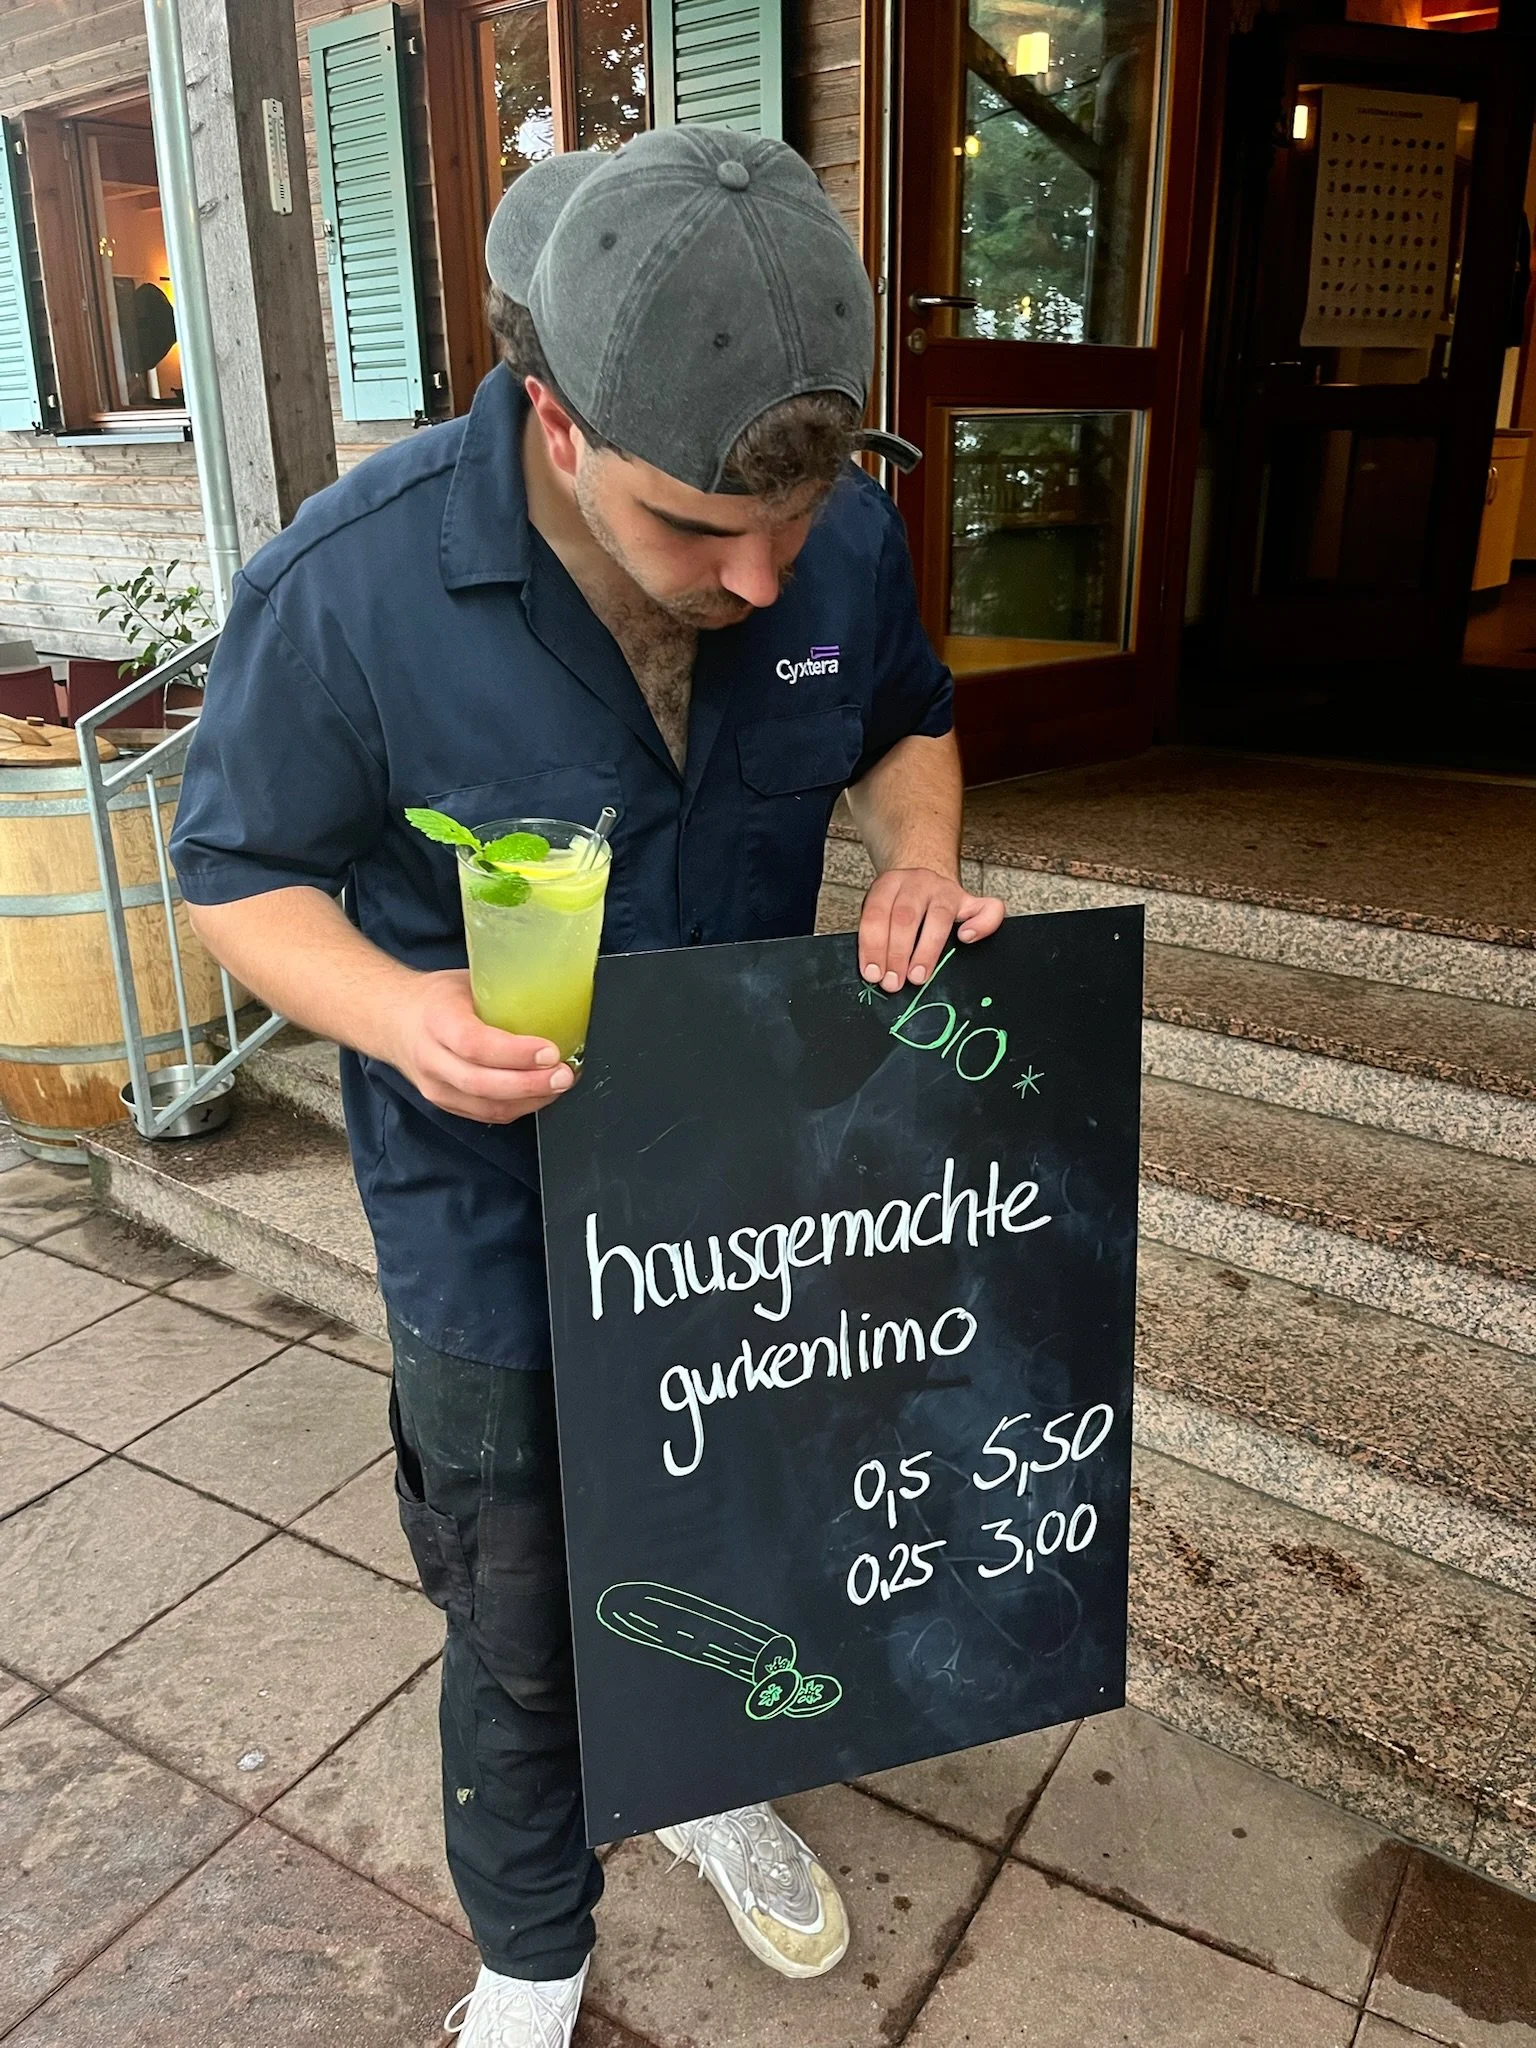 Cyxtera
* bio *
hausgemachte
gurkenlimo
0,5 5,50
0,25 3,00